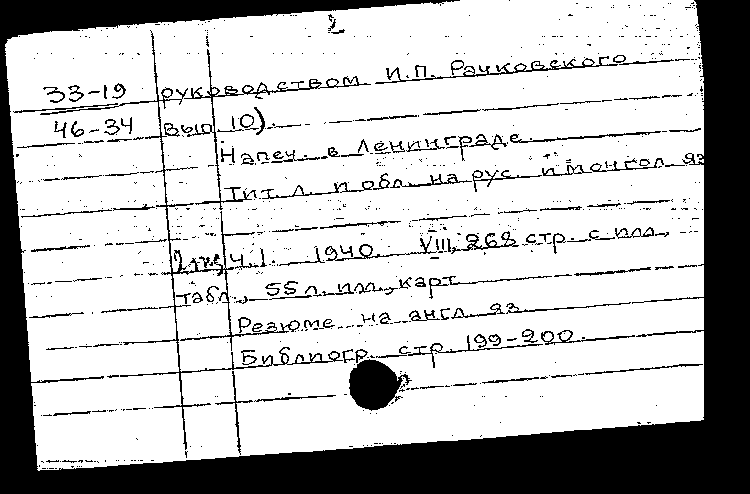 2
33-19 руководством И.П. Рачковского.
46-34 Вып. 10).
Напеч. в Ленинграде.
Тит. л. и обл. на рус. и монгол. яз
2 экз ч. I. 1940. VIII, 268 стр. с илл.,
табл., 55 л. илл., карт.
Резюме на англ. яз.
Библиогр. стр. 199-200.